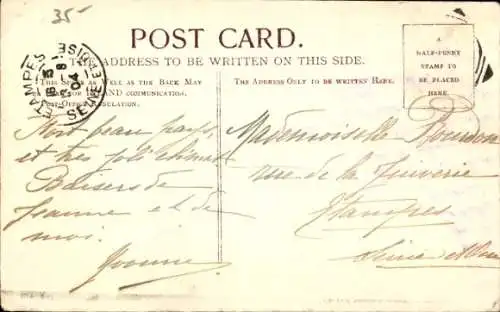 35-
POST CARD.
THE ADDRESS TO BE WRITTEN ON THIS SIDE.
This Space as Well as the Back May
be used for INLAND communication.
Post-Office Regulation.
The Address Only to be written Here.
A
HALF-PENNY
STAMP TO
BE PLACED
HERE.
ETAMPES
SEINE-ET-OISE
04
Fort beau pays
et très joli climat
Baisers de
Jeanne et de
moi.
Yvonne
Mademoiselle
rue de la Juiverie
Etampes
Seine et Oise